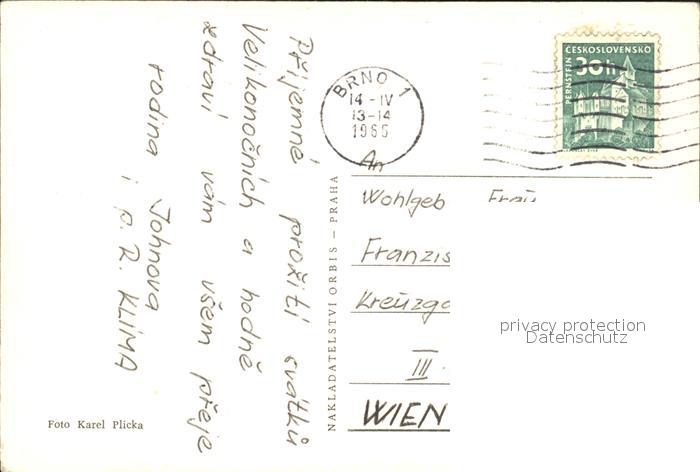 Příjemné prožití svátků
Velikonočních a hodně
zdraví vám všem přeje
rodina Johnova
i p. R. KLÍMA
Foto Karel Plicka
NAKLADATELSTVÍ ORBIS – PRAHA
BRNO 1
14 - IV
13-14
1965
ČESKOSLOVENSKO
PERNŠTEJN
30 h
An
Wohlgeb Frau
Franzis
Kreuzga
III
WIEN
privacy protection
Datenschutz